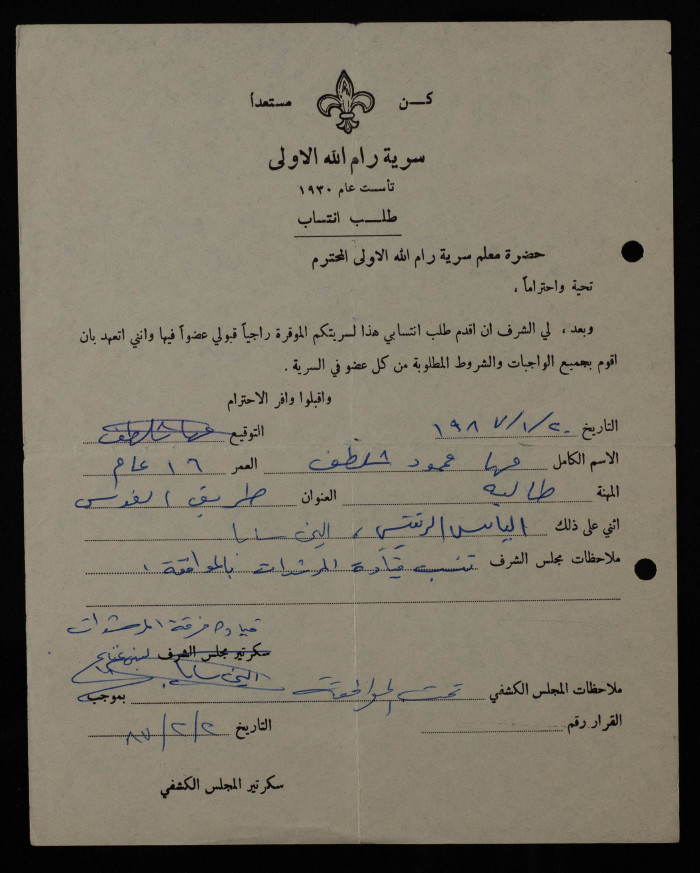 كن مستعداً
سرية رام الله الاولى
تأسست عام ١٩٣٠
طلب انتساب
حضرة معلم سرية رام الله الاولى المحترم
تحية واحتراماً ،
وبعد ، لي الشرف ان اقدم طلب انتسابي هذا لسريتكم الموقرة راجياً قبولي عضواً فيها وانني اتعهد بان
اقوم بجميع الواجبات والشروط المطلوبة من كل عضو في السرية .
واقبلوا وافر الاحترام
التاريخ ١٩٨٧/١/٢٠ التوقيع مها شلطف
الاسم الكامل مها محمود شلطف العمر ١٦ عام
المهنة طالبة العنوان طريق القدس
اثني على ذلك الياس الرنتيسي ، الين سابا
ملاحظات مجلس الشرف تنسب قيادة المرشدات بالموافقة .
قيادة فرقة المرشدات
سكرتير مجلس الشرف
الين سابا
ملاحظات المجلس الكشفي تمت الموافقة بموجب
القرار رقم التاريخ ٨٧/٢/٢
سكرتير المجلس الكشفي